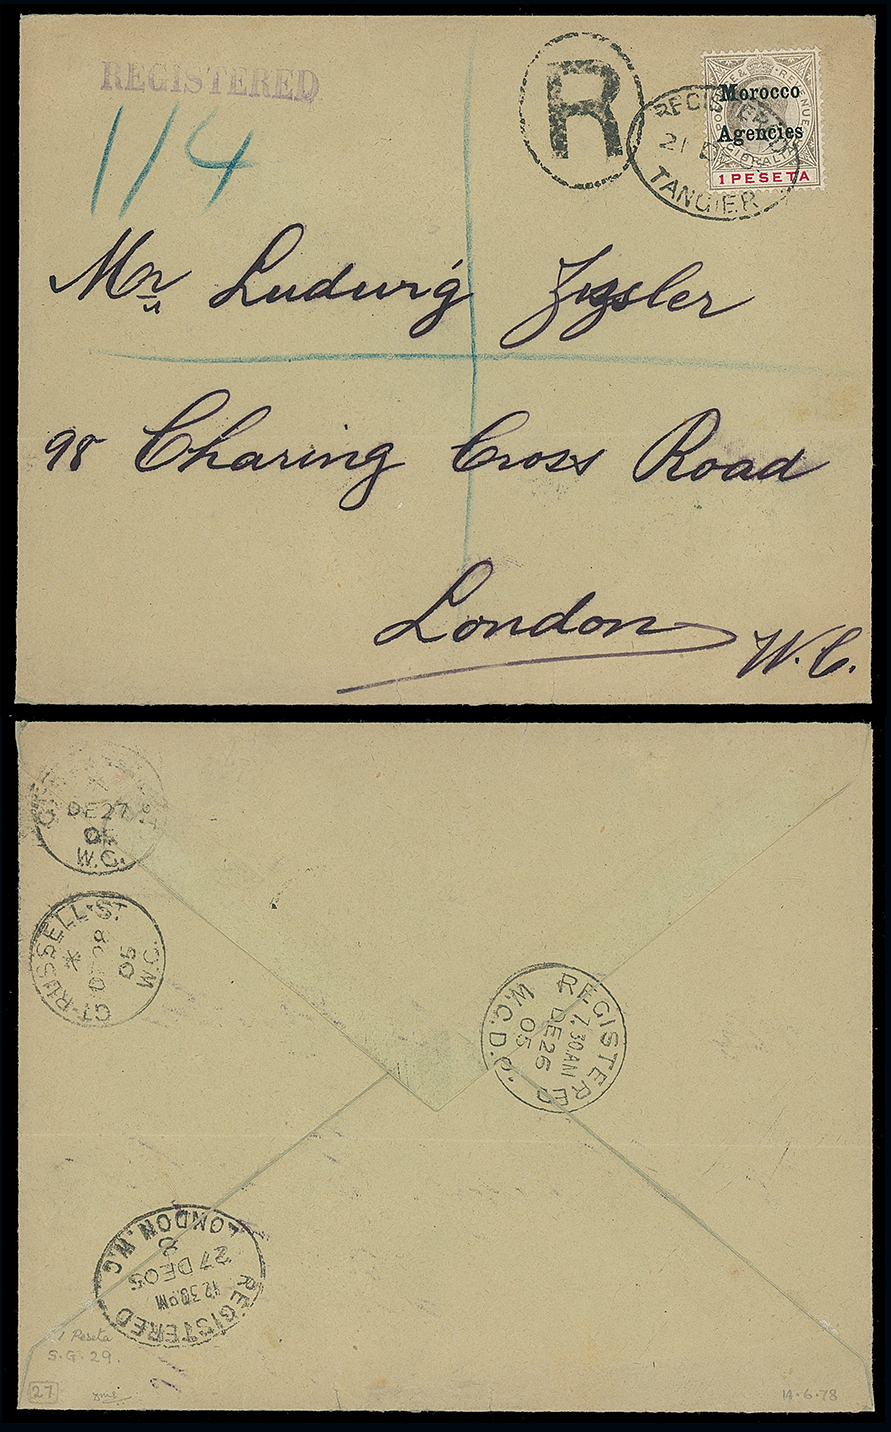 REGISTERED
R
114
Morocco
Agencies
POSTAGE & REVENUE
GIBRALTAR
1 PESETA
REGISTERED
21 DE
TANGIER
Mr Ludwig
98 Charing Cross Road
London
W.C.
DE 27
05
W.C.
GT. RUSSELL. ST.
W.C.
REGISTERED
7.30AM
DE 26
05
W.C.D.O.
REGISTERED
12.30PM
27 DE 05
8
LONDON. W.C.
1 Peseta
S.G.29.
27
14.6.78